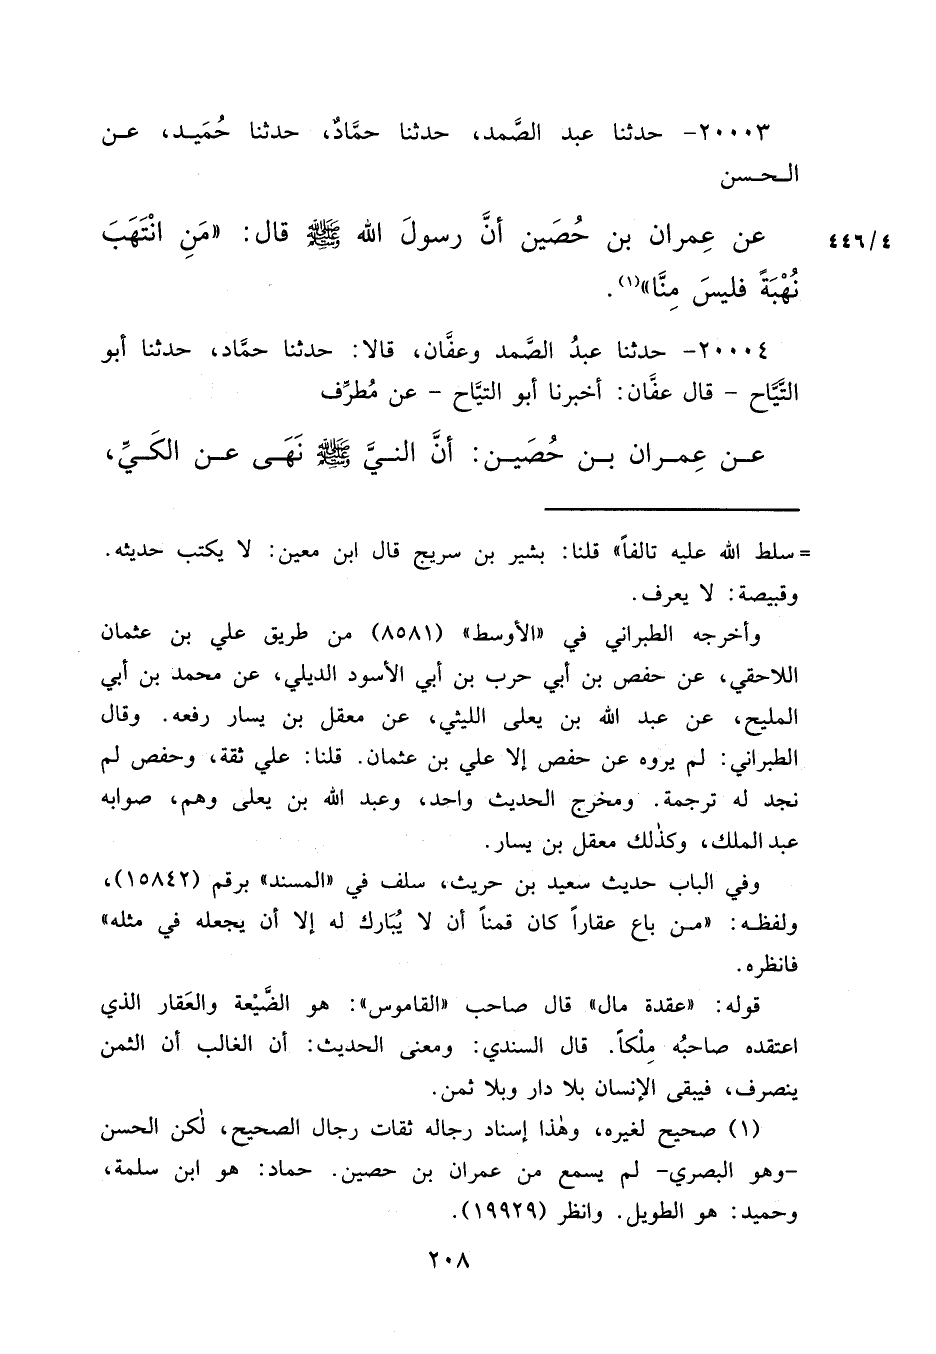 ٢٠٠٠٣- حدثنا عبد الصَّمد، حدثنا حمَّادٌ، حدثنا حُمَيـد، عـن
الـحـسن
عن عِمران بن حُصَين أنَّ رسولَ الله ﷺ قال: «مَنِ انْتَهَبَ
٤٤٦/٤
نُهْبَةً فليسَ مِنَّا»(١).
٢٠٠٠٤- حدثنا عبدُ الصَّمد وعفَّان، قالا: حدثنا حمَّاد، حدثنا أبو
التَّيَّاح - قال عفَّان: أخبرنا أبو التيَّاح - عن مُطرِّف
عـن عِمـران بـن حُصَيـن: أنَّ النبيَّ ﷺ نَهَـى عـن الكَـيِّ،
=سلط الله عليه تالفاً» قلنا: بشير بن سريج قال ابن معين: لا يكتب حديثه.
وقبيصة: لا يعرف.
وأخرجه الطبراني في «الأوسط» (٨٥٨١) من طريق علي بن عثمان
اللاحقي، عن حفص بن أبي حرب بن أبي الأسود الديلي، عن محمد بن أبي
المليح، عن عبد الله بن يعلى الليثي، عن معقل بن يسار رفعه. وقال
الطبراني: لم يروه عن حفص إلا علي بن عثمان. قلنا: علي ثقة، وحفص لم
نجد له ترجمة. ومخرج الحديث واحد، وعبد الله بن يعلى وهم، صوابه
عبد الملك، وكذٰلك معقل بن يسار.
وفي الباب حديث سعيد بن حريث، سلف في «المسند» برقم (١٥٨٤٢)،
ولفظـه: «مـن باع عقاراً كان قمناً أن لا يُبَارك له إلا أن يجعله في مثله»
فانظره.
قوله: «عقدة مال» قال صاحب «القاموس»: هو الضَّيْعة والعَقار الذي
اعتقده صاحبُه مِلْكاً. قال السندي: ومعنى الحديث: أن الغالب أن الثمن
ينصرف، فيبقى الإنسان بلا دار وبلا ثمن.
(١) صحيح لغيره، وهٰذا إسناد رجاله ثقات رجال الصحيح، لٰكن الحسن
-وهو البصري- لم يسمع من عمران بن حصين. حماد: هو ابن سلمة،
وحميد: هو الطويل. وانظر (١٩٩٢٩).
٢٠٨